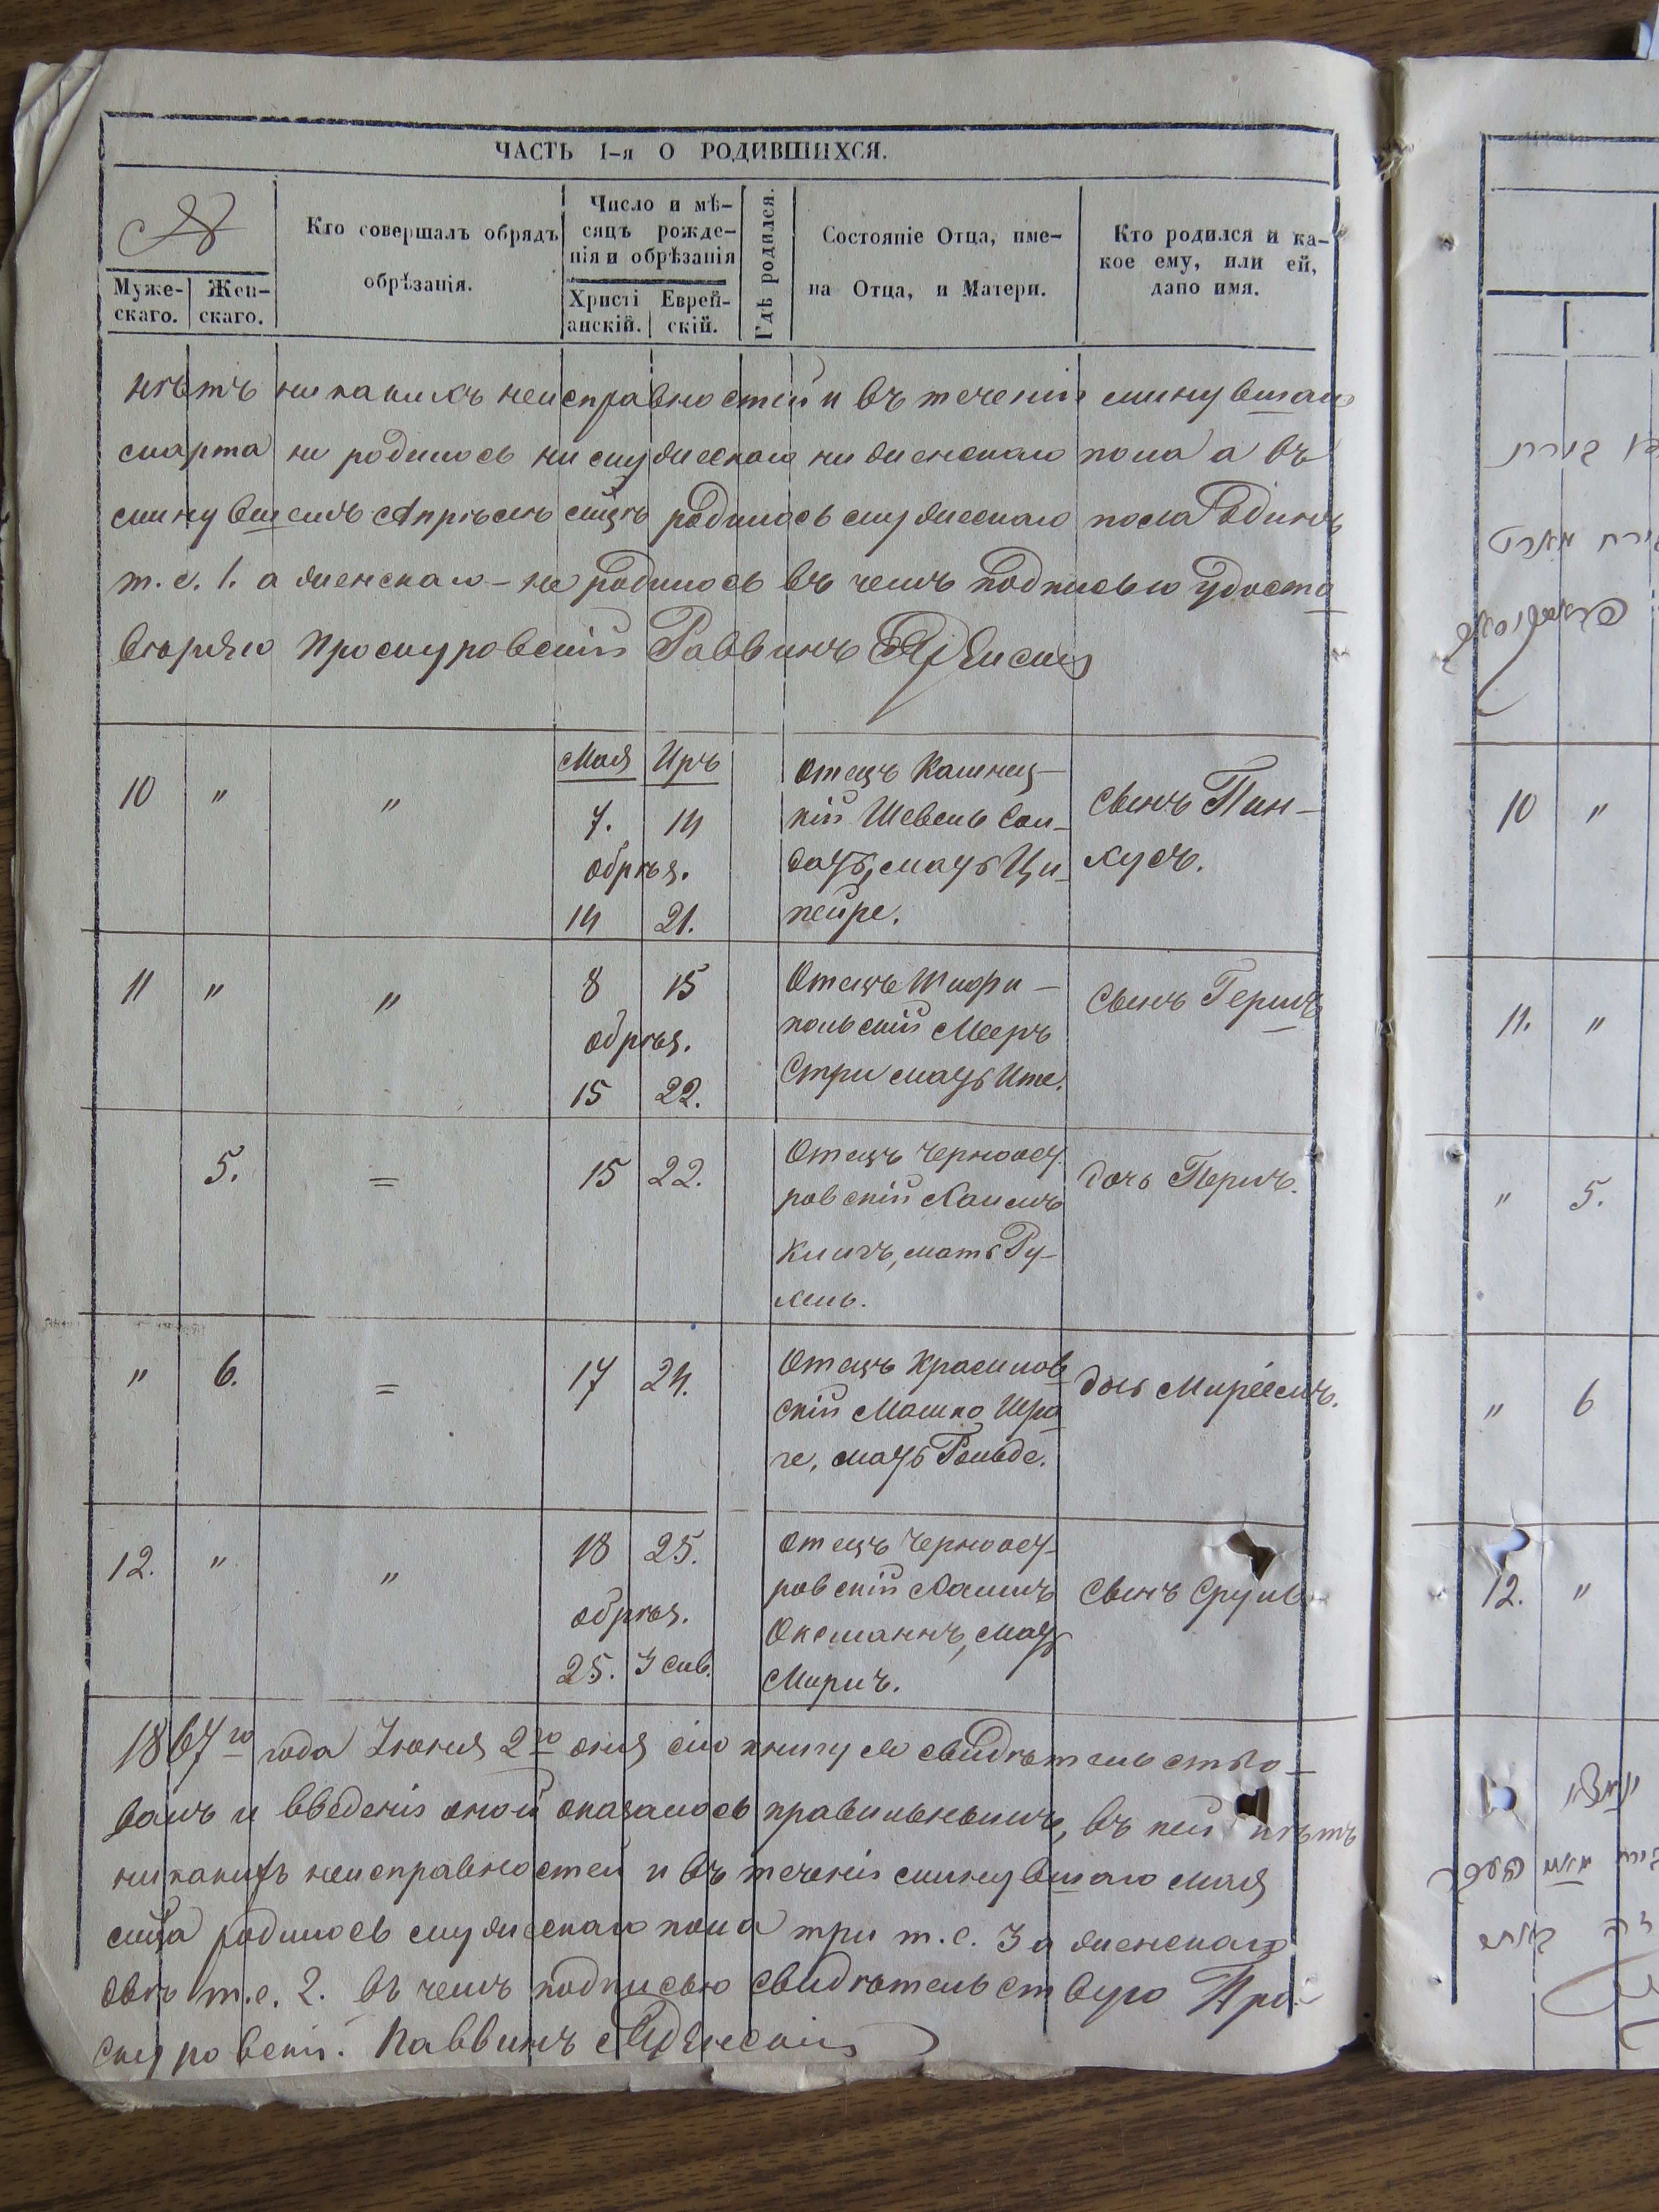 ЧАСТЬ I-я О РОДИВШИХСЯ.
№
Муже-
скаго.
Жен-
скаго.
Кто совершалъ обрядъ
обрѣзанія.
Число и мѣ-
сяцъ рожде-
нія и обрѣзанія
Христі
анскій.
Еврей-
скій.
Гдѣ родился.
Состояніе Отца, име-
на Отца, и Матери.
Кто родился и ка-
кое ему, или ей,
дано имя.
нѣтъ никакихъ неисправностей и въ теченіи минувшаго
марта не родилось ни мужескаго ни женскаго пола а въ
минувшемъ Апрѣлѣ мцѣ родилось мужескаго пола Одинъ
т. е. 1. а женскаго - не родилось въ чемъ подписью удосто
вѣряю Проскуровскій Раввинъ
Мая Иръ
10 " " 7. 14
обрѣз.
14 21.
Отецъ Камнец-
кій Шевель Сан-
датъ, мать Ци-
пейре.
сынъ Пин-
хусъ.
11 " " 8 15
обрѣз.
15 22.
Отецъ Шафи-
польскій Мееръ
Стри мать Ите.
сынъ Гершъ
5. = 15 22.
Отецъ Черноост
ровскій Хаимъ
Клигъ, мать Ру-
хель.
дочь Перлъ.
" 6. = 17 24.
Отецъ Красилов
скій Мошко Шра
ге, мать Гольде.
дочь Миреемъ.
12. " " 18 25.
обрѣз.
25. 3 сив.
Отецъ Черноост-
ровскій Хаимъ
Оксманнъ, мать
Мирлъ.
сынъ Сруль
1867го года Іюня 2го дня сію книгу я свидѣтельство-
валъ и введеніе оной оказалось правильнымъ, въ ней нѣтъ
никакихъ неисправностей и въ теченіи минувшаго мая
мца родилось мужескаго пола три т. е. 3 а женскаго
двѣ т. е. 2. въ чемъ подписью свидѣтельствую Про-
скуровскій. Раввинъ
10 "
11. "
" 5.
" 6
12. "